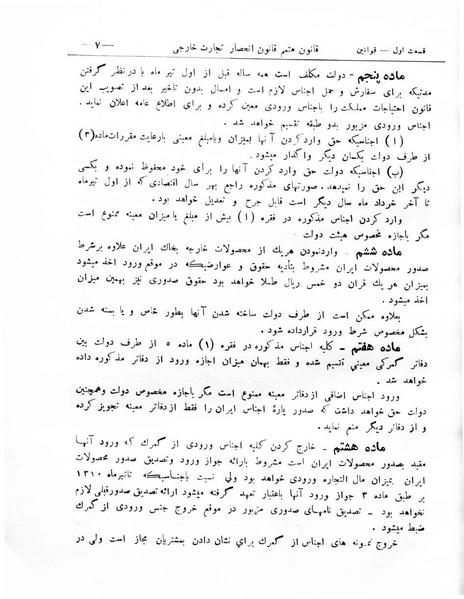 قسمت اول — قوانین
قانون متمم قانون انحصار تجارت خارجی
— ۷ —
ماده پنجم - دولت مکلف است همه ساله قبل از اول تیر ماه با در نظر گرفتن
مدتیکه برای سفارش و حمل اجناس لازم است و امسال بدون تاخیر بعد از تصویب این
قانون احتیاجات مملکت را باجناس ورودی معین کرده و برای اطلاع عامه اعلان نماید .
اجناس ورودی مزبور بدو طبقه تقسیم خواهد شد
(۱) اجناسیکه حق وارد کردن آنها بمیزان ویا مبلغ معینی بارعایت مقررات ماده (۳)
از طرف دولت بکسان دیگر واگذار میشود .
(ب) اجناسیکه دولت حق وارد کردن آنها را برای خود محفوظ نموده و بکسی
دیگر این حق را نمیدهد . صورتهای مذکوره راجع بهر سال اقتصادی که از اول تیرماه
تا آخر خرداد ماه سال دیگر است قابل جرح و تعدیل خواهد بود .
وارد کردن اجناس مذکوره در فقره (۱) بیش از مبلغ یا میزان معینه ممنوع است
مگر باجازه مخصوص هیئت دولت
ماده ششم - واردنمودن هر یك از محصولات خارجه بخاك ایران علاوه برشرط
صدور محصولات ایران مشروط بتأدیه حقوق و عوارضیکه در موقع ورود اخذ میشود
بمیزان هر یك قران دو خمس ریال طلا خواهد بود حقوق صدوری نیز بهمین میزان
اخذ میشود .
بعلاوه ممکن است از طرف دولت ساخته شدن آنها بطور خاص و یا بسته شدن
بشکل مخصوص شرط ورود قرارداده شود .
ماده هفتم - کلیه اجناس مذکوره در فقره (۱) ماده ۵ از طرف دولت بین
دفاتر گمرکی معینی تقسیم شده و فقط بهمان میزان اجازه ورود از دفاتر مذکوره داده
خواهد شد
ورود اجناس اضافی از دفاتر معینه ممنوع است مگر باجازه مخصوص دولت وهمچنین
دولت حق خواهد داشت که صدور پارهٔ اجناس ایران را فقط از دفاتر معینه تجویز کرده
و از دفاتر دیگر منع نماید .
ماده هشتم - خارج کردن کلیه اجناس ورودی از گمرك که ورود آنها
مقید بصدور محصولات ایران است مشروط بارائه جواز ورود وتصدیق صدور محصولات
ایران بمیزان مال التجاره ورودی خواهد بود ولی نسبت باجناسیکه تاتیرماه ۱۳۱۰
بر طبق ماده ۳ جواز ورود آنها باعتبار تعهد گرفته میشود ارائه تصدیق صدورقبلی لازم
نخواهد بود - تصدیق نامهای صدوری مزبور در موقع خروج جنس ورودی از گمرك
ضبط میشود .
خروج نمونه های اجناس از گمرك برای نشان دادن بمشتریان مجاز است ولی در